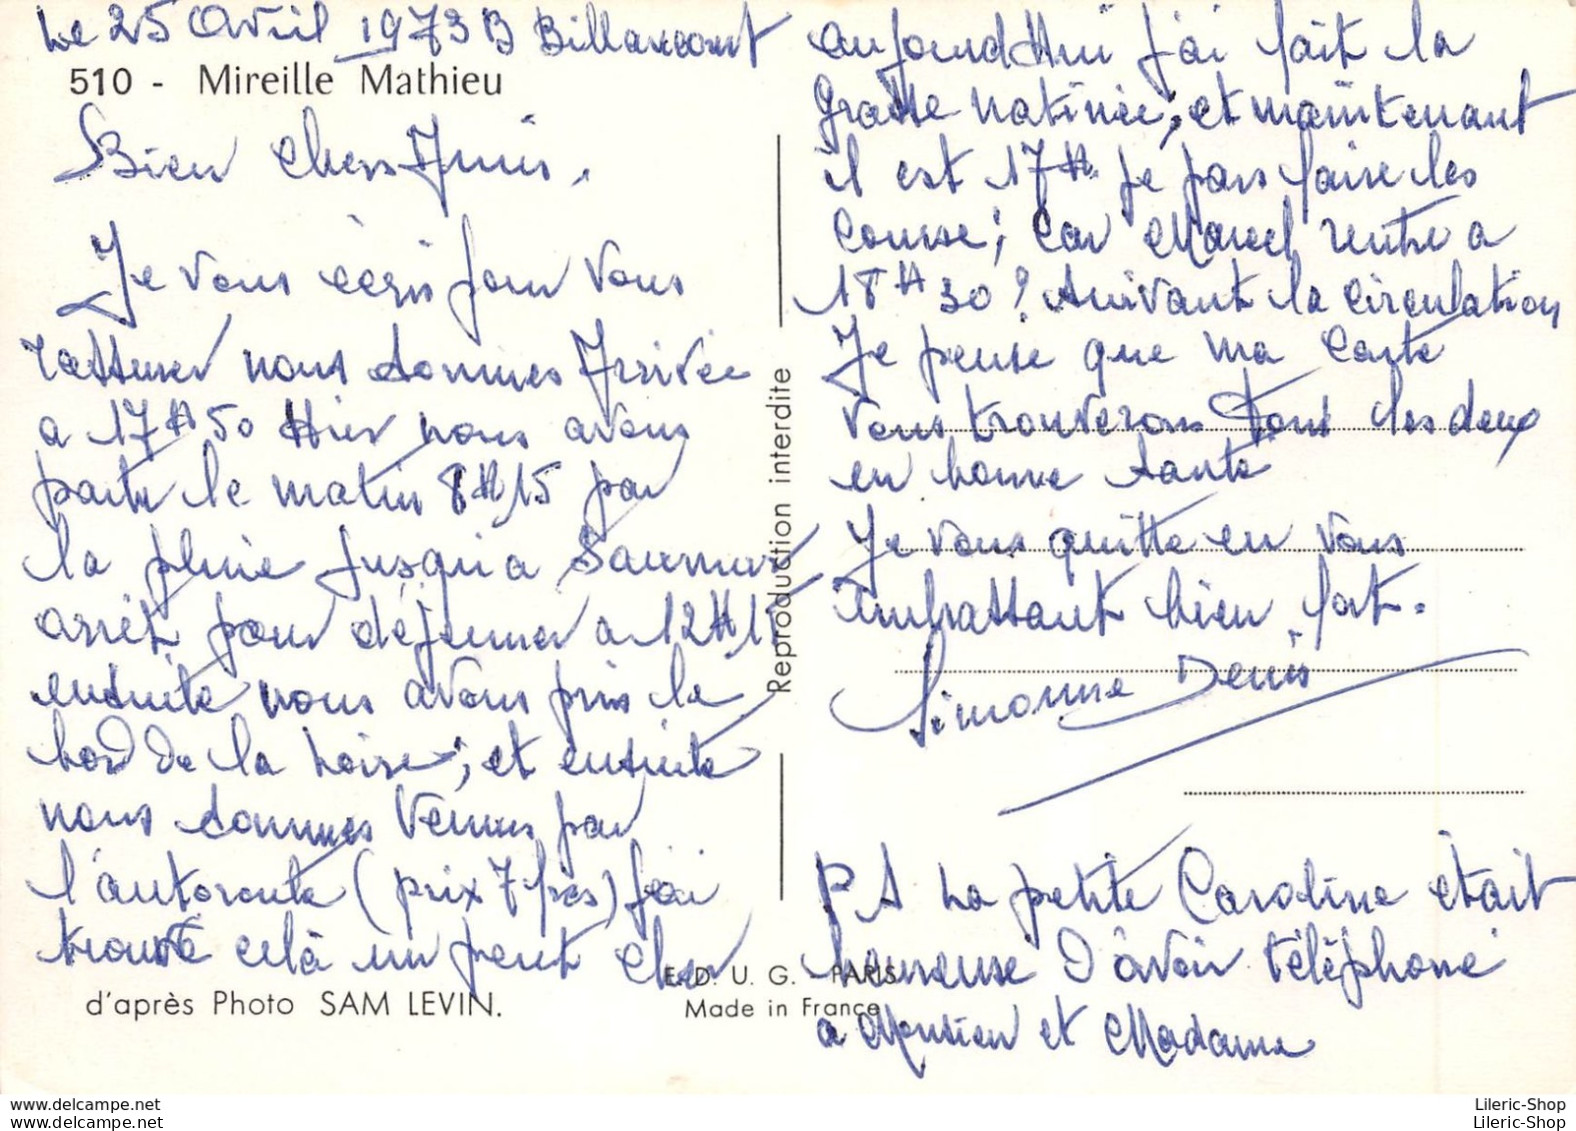 Le 25 Avril 1973 B Billancourt
510 - Mireille Mathieu
Bien Chers Amis.
Je vous écris pour vous
rassurer nous sommes Arrivée
a 17H50 Hier nous avons
parte le matin 8H15 par
la pluie jusqu'a Saumur
arrêt pour déjeuner a 12H15
ensuite nous avons pris le
bord de la Loire, et ensuite
nous sommes venus par
l'autoroute (prix 7 frcs) j'ai
trouvé celà un peut cher
d'après Photo SAM LEVIN.
Reproduction interdite
E. D. U. G. PARIS
Made in France
aujourd'Hui j'ai fait la
grasse matinée, et maintenant
il est 17H je pars faire les
course, car Marcel rentre a
18H30? suivant la circulation
Je pense que ma carte
vous trouverons tous les deux
en bonne santé
Je vous quitte en vous
embrassant bien fort.
Simonne Denis
PS La petite Caroline était
heureuse d'avoir téléphoné
a Monsieur et Madame
Lileric-Shop
Lileric-Shop
www.delcampe.net
www.delcampe.net